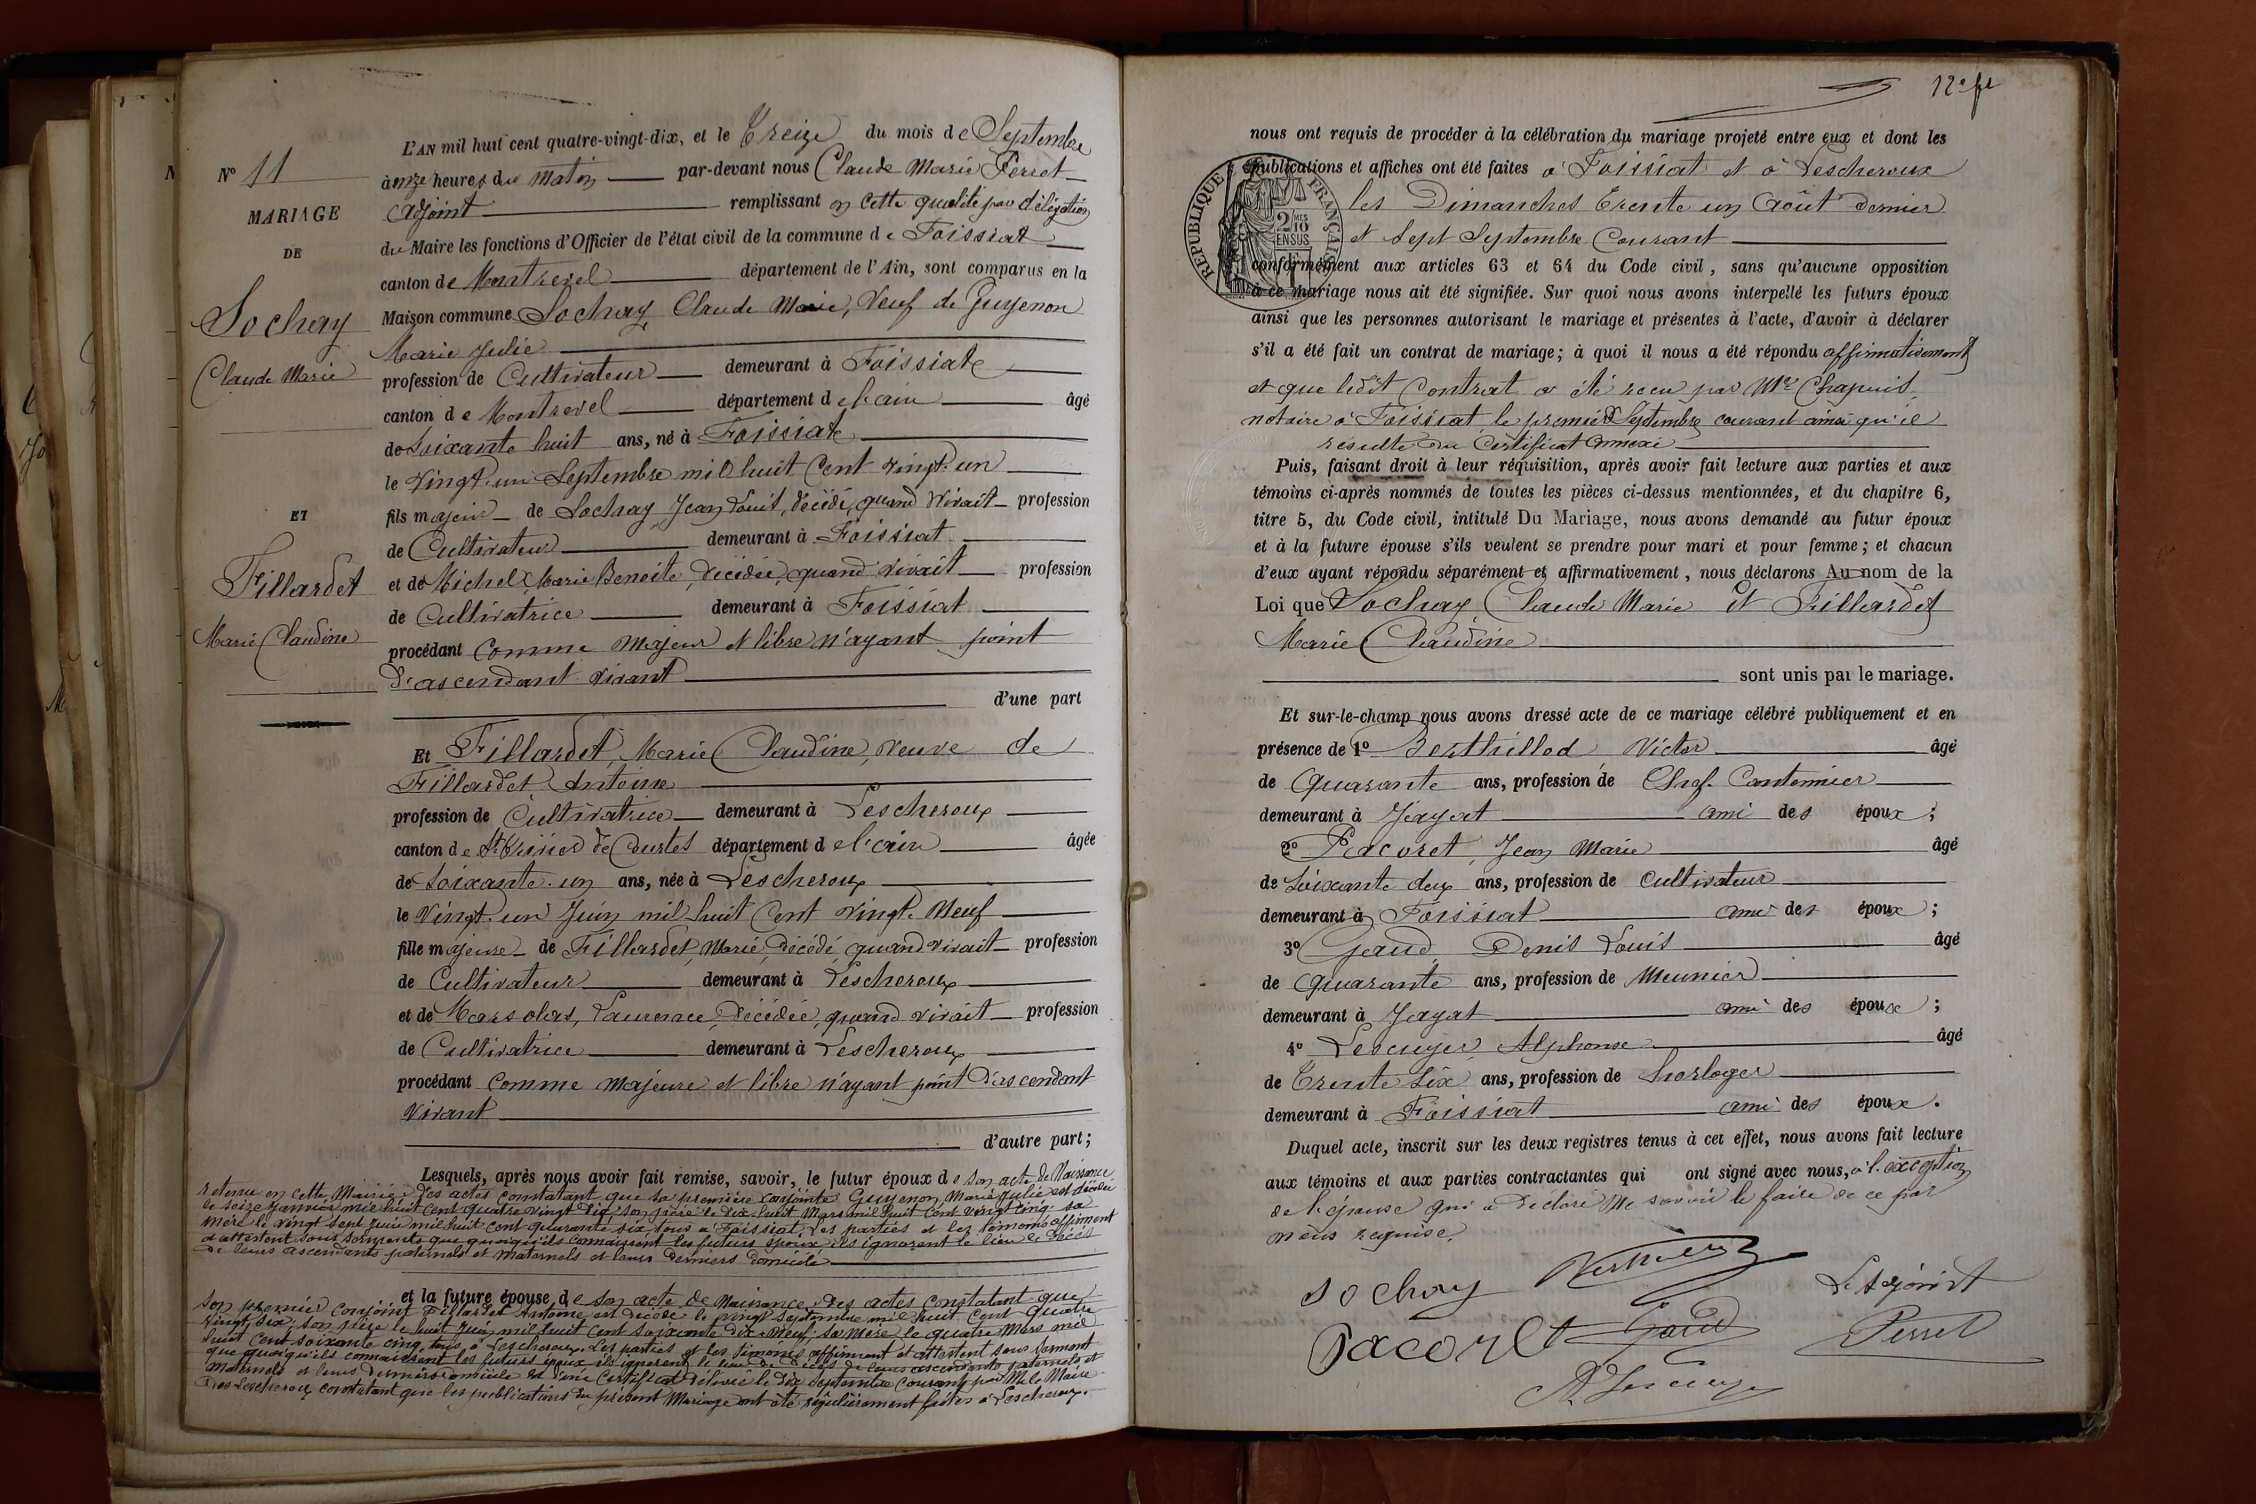 L'AN mil huit cent quatre-vingt-dix, et le Treize du mois de Septembre
N° 11
à onze heures du Matin par-devant nous Claude Marie Perret
MARIAGE
adjoint remplissant en cette qualité par délégation
DE
du Maire les fonctions d'Officier de l'état civil de la commune de Foissiat
canton de Montrevel département de l'Ain, sont comparus en la
Sochay
Maison commune Sochay Claude Marie, Veuf de Guyenon
Marie Julie
Claude Marie
profession de Cultivateur demeurant à Foissiat
canton de Montrevel département de l'ain âgé
de Soixante huit ans, né à Foissiat
le Vingt un Septembre mil huit Cent vingt un
ET
fils majeur de Sochay Jean Louis, décédé, quand Vivait profession
de Cultivateur demeurant à Foissiat
Fillardet
et de Michel Marie Benoite, décédée, quand vivait profession
de Cultivatrice demeurant à Foissiat
Marie Claudine
procédant comme Majeur et libre n'ayant point
d'ascendant vivant
d'une part
Et Fillardet, Marie Claudine, veuve de
Fillardet Antoine
profession de Cultivatrice demeurant à Lescheroux
canton de St Trivier de Courtes département de l'ain âgée
de Soixante un ans, née à Lescheroux
le Vingt un Juin mil huit Cent vingt Neuf
fille majeure de Fillardet, Marie, Décédé, quand vivait profession
de Cultivateur demeurant à Lescheroux
et de Marsolas, Laurence, Décédée, quand vivait profession
de Cultivatrice demeurant à Lescheroux
procédant comme Majeure et libre n'ayant point d'ascendant
Vivant
d'autre part;
Lesquels, après nous avoir fait remise, savoir, le futur époux de son acte de Naissance
retenu en cette Mairie; Des actes constatant que sa première conjointe Guyenon Marie Julie est décédée
le seize Janvier mil huit Cent quatre vingt dix; son père le dix huit Mars mil huit Cent vingt cinq; sa
mère le vingt sept Juin mil huit cent quarante six tous à Foissiat, les parties et les témoins affirment
et attestent sous serments que quoiqu'ils connaissent les futurs époux, ils ignorent le lieu de décès
de leurs ascendants paternels et maternels et leurs derniers domicile
et la future épouse, de son acte de Naissance; Des actes constatant que
son premier conjoint Fillardet Antoine est décédé le vingt Septembre mil huit Cent quatre
vingt six; son père le huit Juin mil huit Cent soixante dix Neuf; sa mère le quatre Mars mil
huit Cent soixante cinq, tous à Lescheroux. Les parties et les témoins affirment et attestent sous serment
que quoiqu'ils connaissent les futurs époux ils ignorent le lieu de décès de leurs ascendants paternels et
maternels et leurs derniers domicile et d'un Certificat délivré le dix Septembre Courant par Mr le Maire
de Lescheroux constatant que les publications du présent Mariage ont été régulièrement faites à Lescheroux.
12e ft
nous ont requis de procéder à la célébration du mariage projeté entre eux et dont les
publications et affiches ont été faites à Foissiat et à Lescheroux
les Dimanches Trente un Août dernier
et Sept Septembre Courant
RÉPUBLIQUE FRANÇAISE
2 MES 10
EN SUS
conformément aux articles 63 et 64 du Code civil, sans qu'aucune opposition
à ce mariage nous ait été signifiée. Sur quoi nous avons interpellé les futurs époux
ainsi que les personnes autorisant le mariage et présentes à l'acte, d'avoir à déclarer
s'il a été fait un contrat de mariage; à quoi il nous a été répondu affirmativement
et que ledit Contrat a été reçu par Me Chapuis
notaire à Foissiat le premier Septembre courant ainsi qu'il
résulte du Certificat annexé
Puis, faisant droit à leur réquisition, après avoir fait lecture aux parties et aux
témoins ci-après nommés de toutes les pièces ci-dessus mentionnées, et du chapitre 6,
titre 5, du Code civil, intitulé Du Mariage, nous avons demandé au futur époux
et à la future épouse s'ils veulent se prendre pour mari et pour femme; et chacun
d'eux ayant répondu séparément et affirmativement, nous déclarons Au nom de la
Loi que Sochay Claude Marie et Fillardet
Marie Claudine
sont unis par le mariage.
Et sur-le-champ nous avons dressé acte de ce mariage célébré publiquement et en
présence de 1° Berthillod Victor âgé
de Quarante ans, profession de Chef Cantonnier
demeurant à Jayat ami des époux;
2° Pacoret, Jean Marie âgé
de Soixante deux ans, profession de Cultivateur
demeurant à Foissiat ami des époux;
3° Gaud, Denis Louis âgé
de Quarante ans, profession de Meunier
demeurant à Jayat ami des époux;
4° Lescuyer Alphonse âgé
de Trente Six ans, profession de horloger
demeurant à Foissiat ami des époux.
Duquel acte, inscrit sur les deux registres tenus à cet effet, nous avons fait lecture
aux témoins et aux parties contractantes qui ont signé avec nous, à l'exception
de l'épouse qui a déclaré Ne savoir le faire de ce par
nous requise.
Sochay
Le Adjoint
Pacoret Gaud Perret
A. Lescuyer